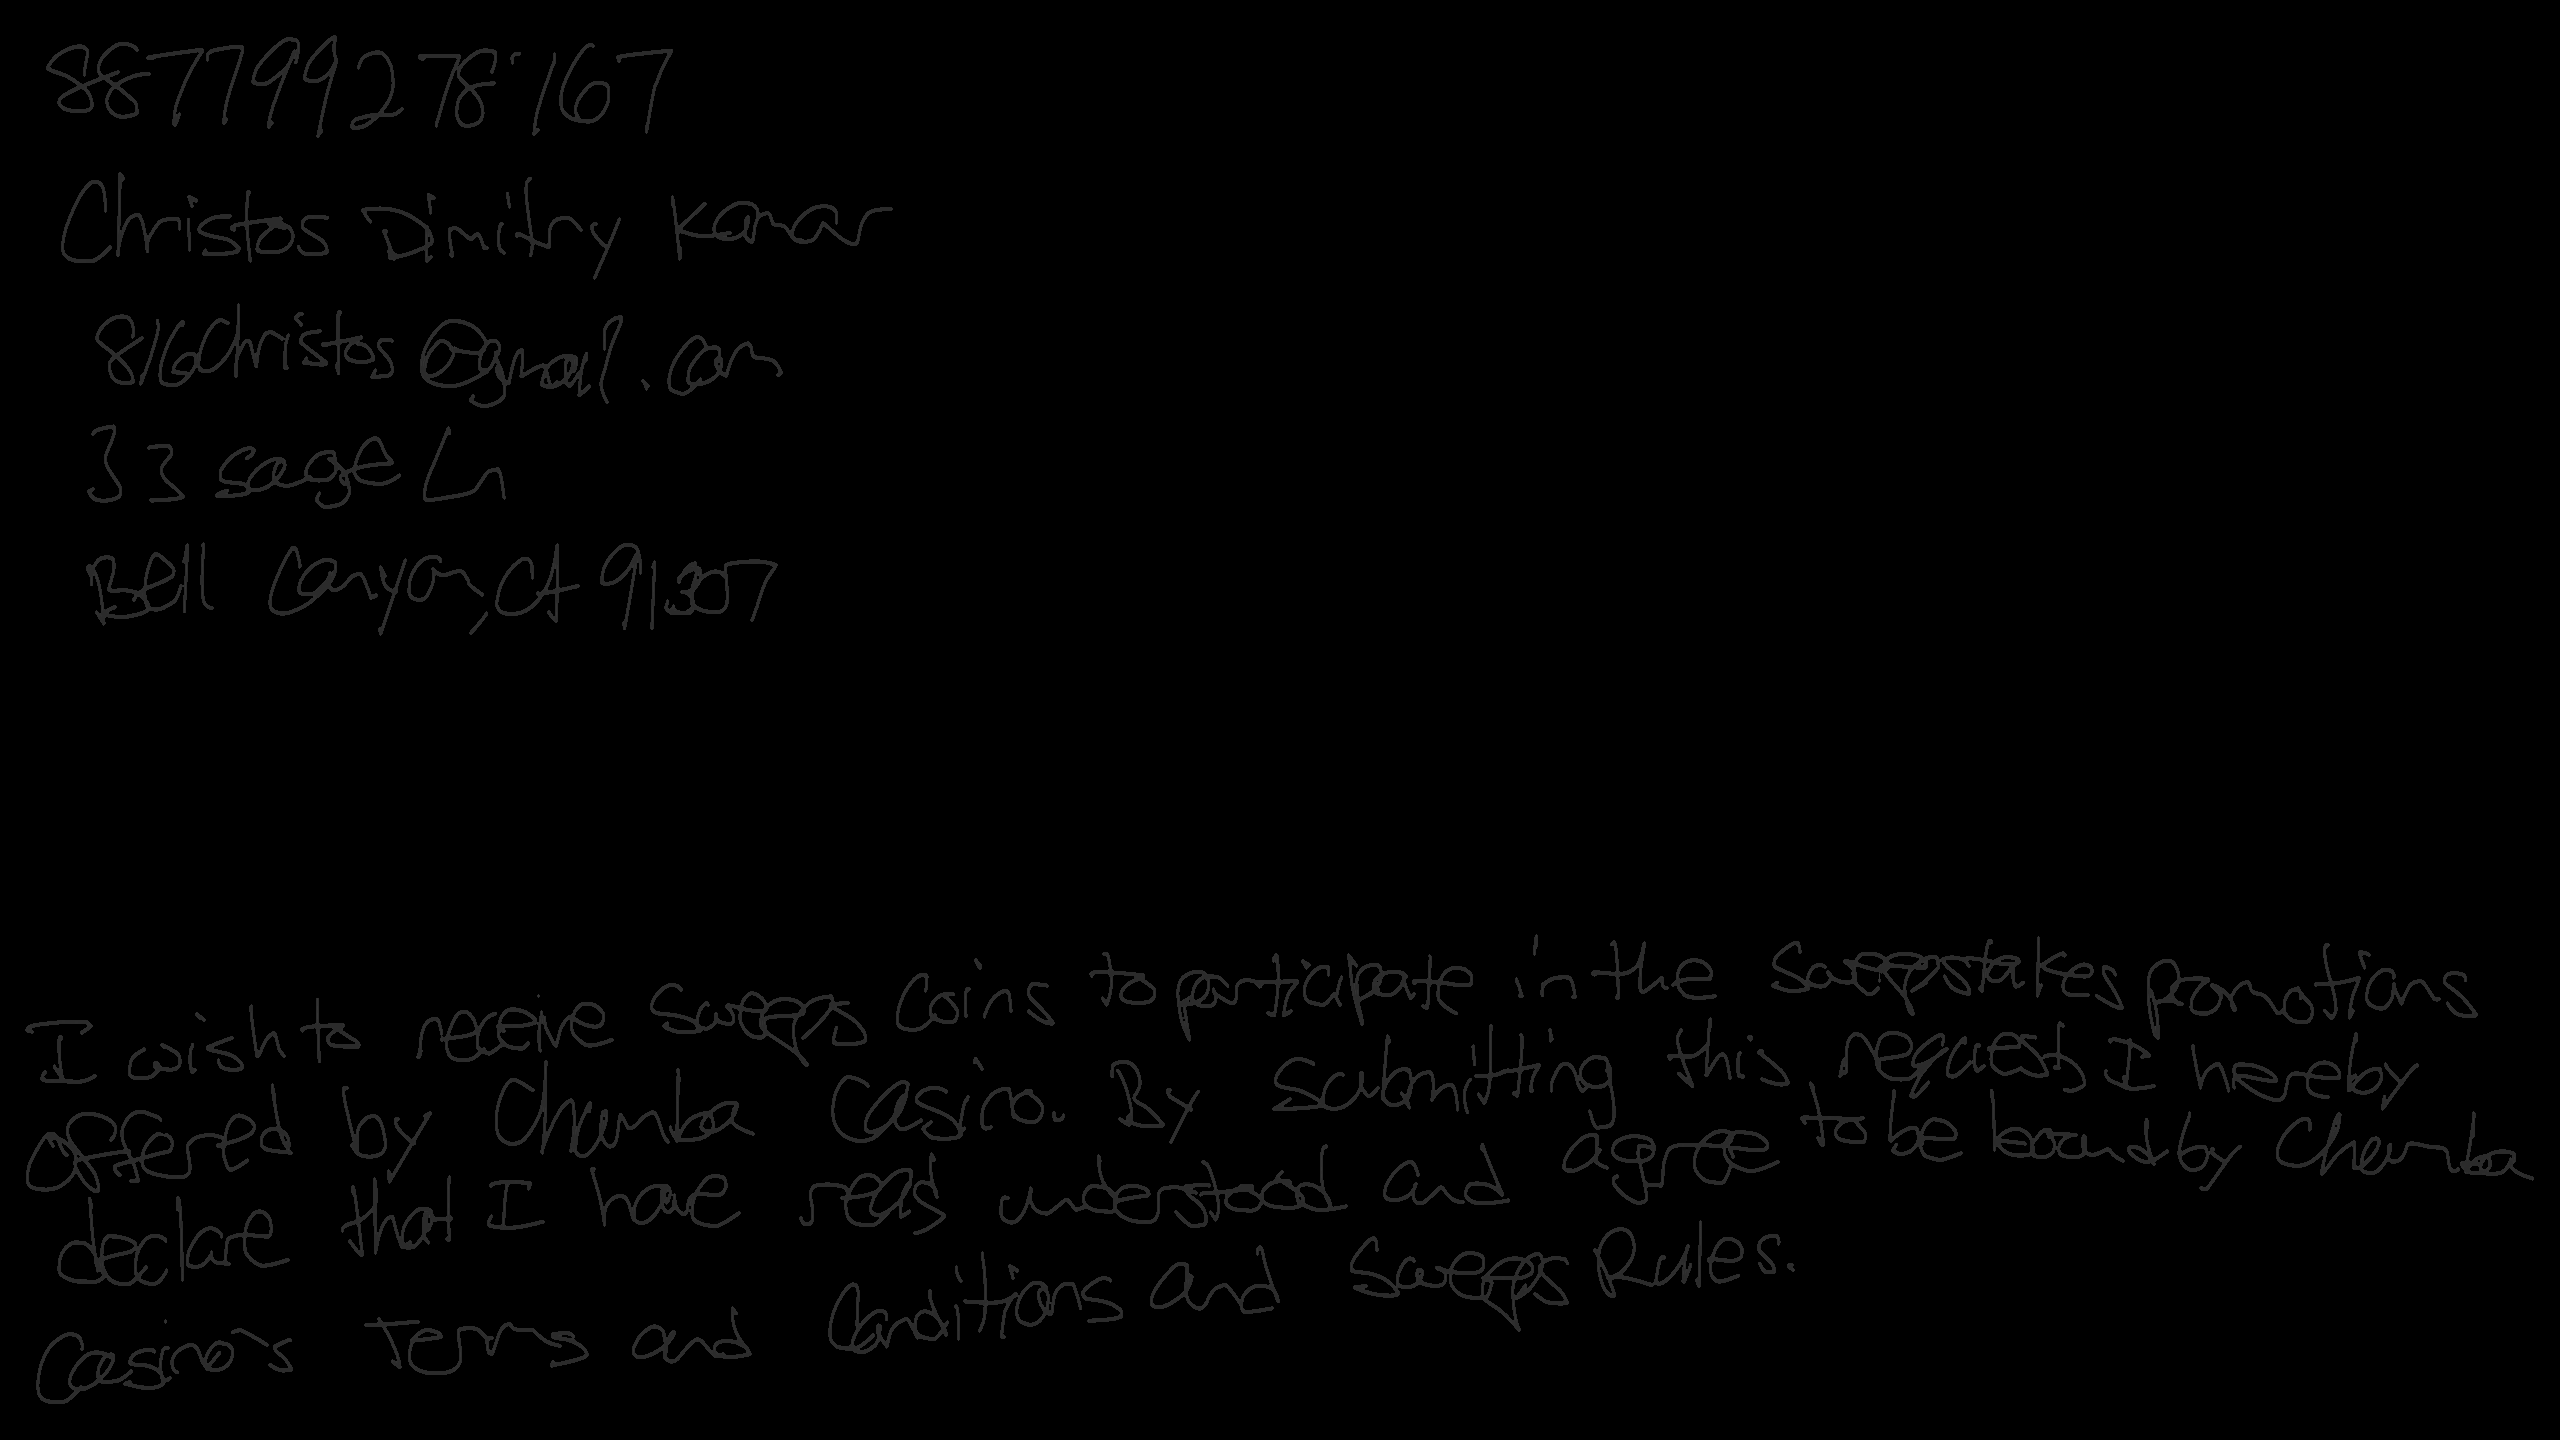 887799278167
Christos Dimitry Kamar
816christos@gmail.com
33 sage Ln
Bell Canyon, CA 91307
I wish to receive sweeps coins to participate in the sweepstakes promotions
offered by Chumba Casino. By submitting this request, I hereby
declare that I have read, understood and agree to be bound by Chumba
Casino's Terms and Conditions and Sweeps Rules.